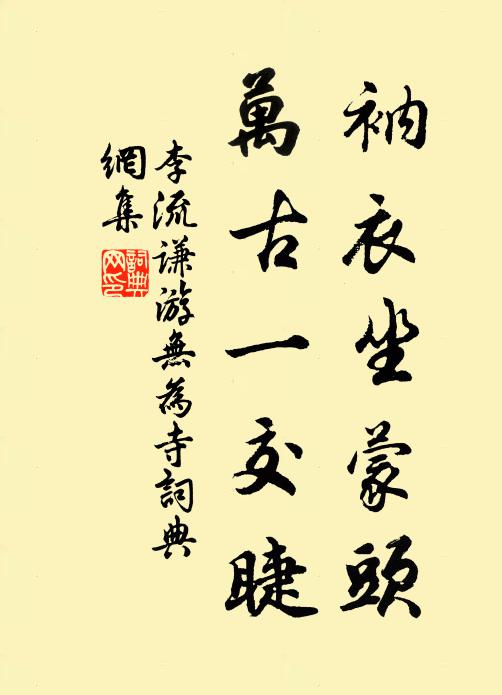 衲衣坐蒙頭
萬古一交睫
李流謙游無為寺詞典
網集
詞典网印